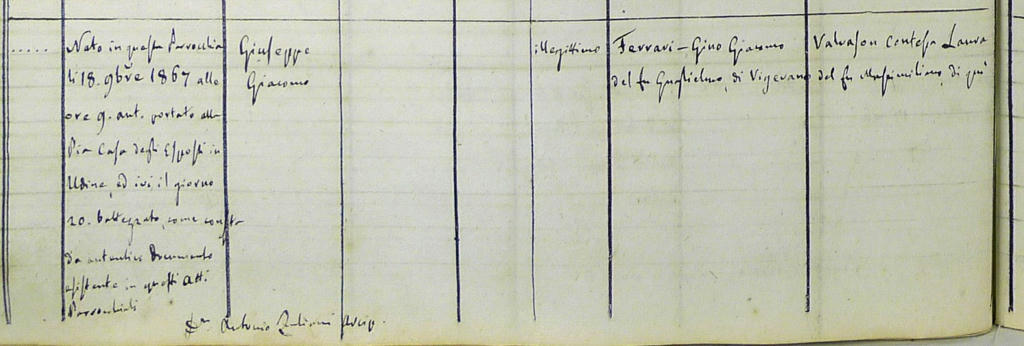 ..... Nato in questa Parrocchia Giuseppe illegittimo Ferrari - Gino Giacomo Valvason Contessa Laura
li 18. 9bre 1867 alle Giacomo del fu Guglielmo, di Vigevano del fu Massimiliano, di qui
ore 9. ant. portato alla
Pia Casa degli Esposti in
Udine, ed ivi il giorno
20. battezzato, come consta
da autentico Documento
esistente in questi Atti
Parrocchiali
Dn Antonio Zuliani Arcip.